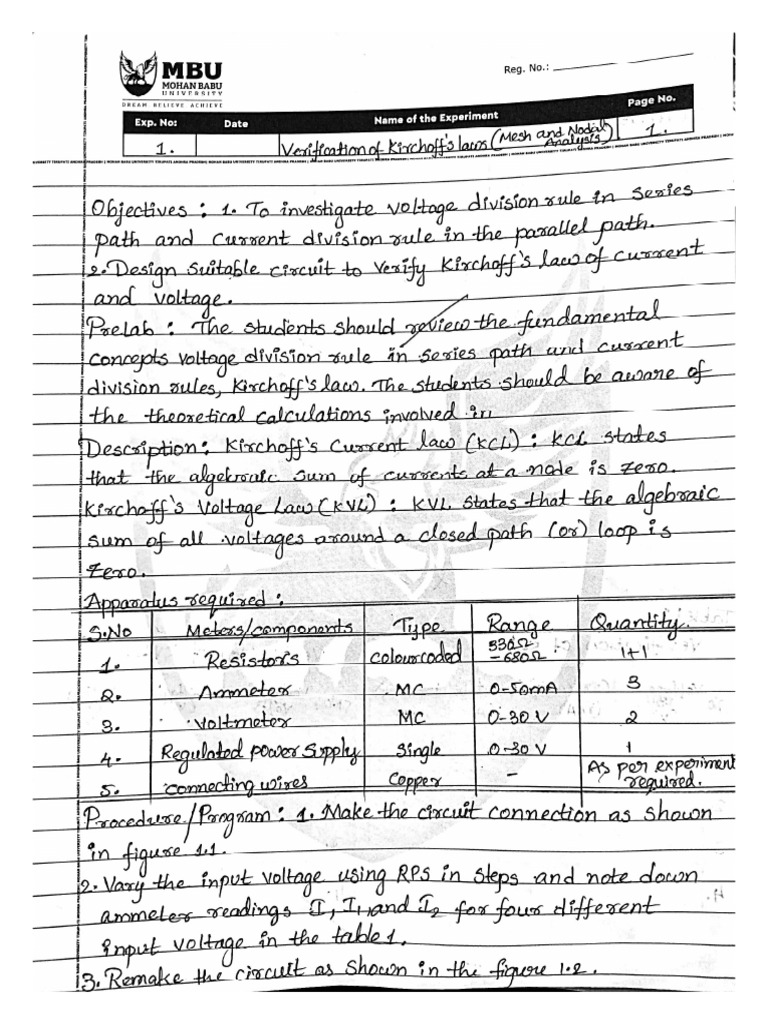 MBU
MOHAN BABU
UNIVERSITY
DREAM BELIEVE ACHIEVE
Reg. No.:
Exp. No: Date Name of the Experiment Page No.
1. Verification of Kirchoff's laws (Mesh and Nodal Analysis) 1.
Objectives : 1. To investigate voltage division rule in series
path and current division rule in the parallel path.
2. Design suitable circuit to verify Kirchoff's law of current
and voltage.
Prelab : The students should review the fundamental
concepts voltage division rule in series path and current
division rules, Kirchoff's law. The students should be aware of
the theoretical calculations involved in
Description: Kirchoff's Current law (KCL) : KCL states
that the algebraic sum of currents at a node is zero.
Kirchoff's Voltage Law (KVL) : KVL states that the algebraic
sum of all voltages around a closed path (or) loop is
zero.
Apparatus required :
S.No Meters/components Type Range Quantity
1. Resistors colourcoded 330Ω -680Ω 1+1
2. Ammeter MC 0-50mA 3
3. voltmeter MC 0-30 V 2
4. Regulated power supply single 0-30 V 1
5. connecting wires copper - As per experiment required.
Procedure/Program : 1. Make the circuit connection as shown
in figure 1.1.
2. Vary the input voltage using RPS in steps and note down
ammeter readings I, I1, and I2 for four different
input voltage in the table 1.
3. Remake the circuit as shown in the figure 1.2.